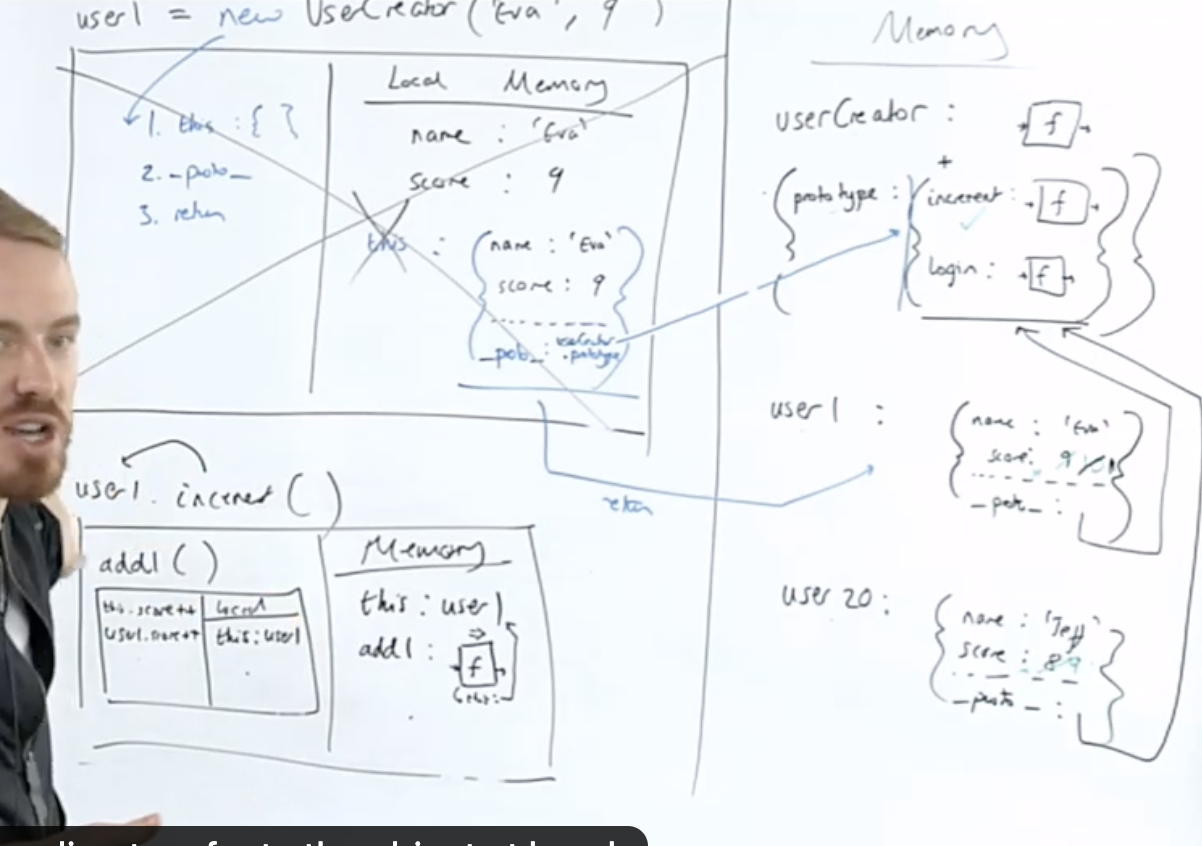 user1 = new UserCreator('Eva', 9)
1. this : { }
2. _proto_
3. return
Local Memory
name : 'Eva'
score : 9
this :
name : 'Eva'
score : 9
UserCreator
.prototype
return
user1.increment()
add1()
this.score++
user1.score++
local
this : user1
Memory
this : user1
add1 : f
=>
Memory
userCreator : f
+
{prototype : {increment : f
login : f
user1 :
name : 'Eva'
score : 9
_proto_ :
user20 :
name : 'Jeff'
score : 8 9
_proto_ :